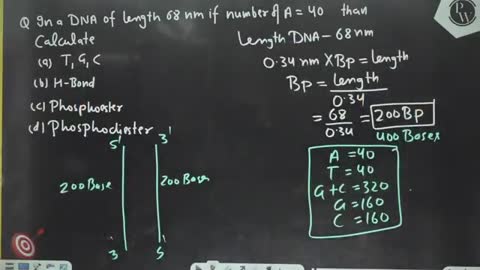 Q In a DNA of length 68 nm if number of A = 40 than
Calculate
(a) T, G, C
(b) H-Bond
(c) Phosphoester
(d) Phosphodiester
Length DNA - 68nm
0.34 nm X Bp = length
Bp = length
0.34
= 68
0.34
= 200 Bp
400 Bases
5' 3'
200 Base 200 Bases
3 5
A = 40
T = 40
G + C = 320
G = 160
C = 160
PW